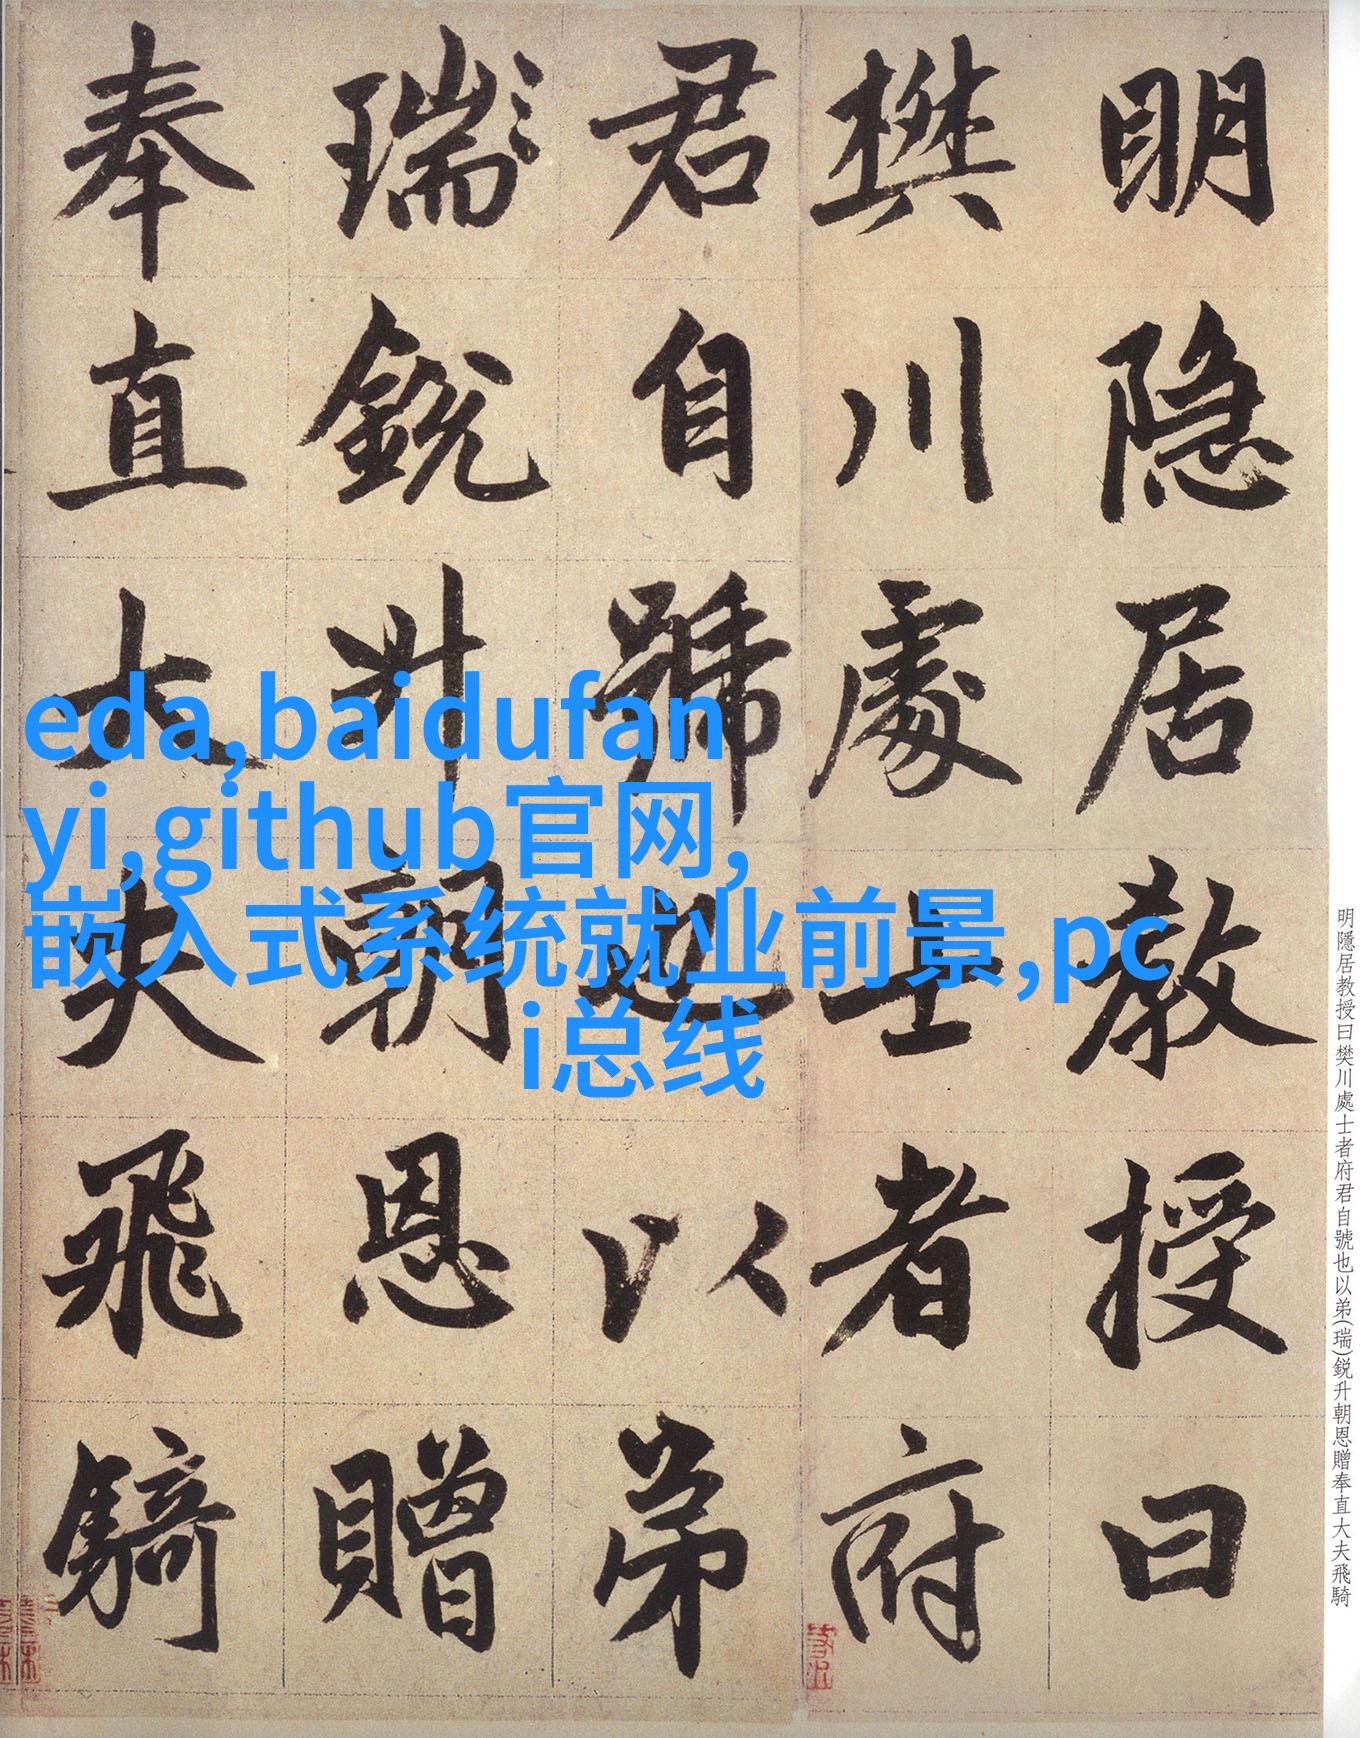 明隐居教授曰
樊川處士者府
君自號也以弟
瑞銳升朝恩贈
奉直大夫飛騎
eda,baidufan
yi,github官网,
嵌入式系统就业前景,pc
i总线
明隱居教授曰樊川處士者府君自號也以弟(瑞)鋭升朝恩贈奉直大夫飛騎